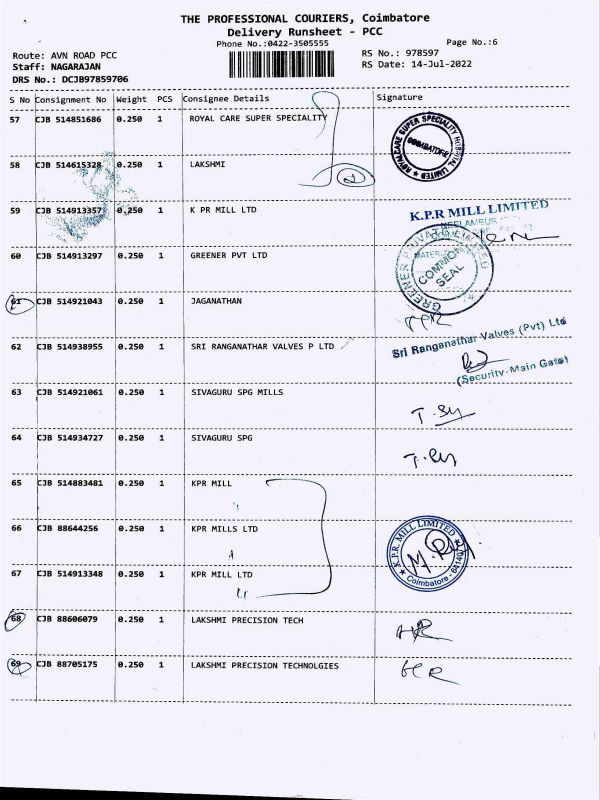 THE PROFESSIONAL COURIERS, Coimbatore
Delivery Runsheet - PCC
Phone No.:0422-3505555
Page No.:6
Route: AVN ROAD PCC
RS No.: 978597
Staff: NAGARAJAN
RS Date: 14-Jul-2022
DRS No.: DCJB97859706
S No Consignment No Weight PCS Consignee Details Signature
57 CJB 514851686 0.250 1 ROYAL CARE SUPER SPECIALITY
ROYALCARE SUPER SPECIALITY HOSPITAL LIMITED
COIMBATORE
58 CJB 514615328 0.250 1 LAKSHMI
2
59 CJB 514913357 0.250 1 K PR MILL LTD
K.P.R MILL LIMITED
60 CJB 514913297 0.250 1 GREENER PVT LTD
GREENER PRIVATE LIMITED
COMMON SEAL
61 CJB 514921043 0.250 1 JAGANATHAN
62 CJB 514938955 0.250 1 SRI RANGANATHAR VALVES P LTD
Sri Ranganathar Valves (Pvt) Ltd
(Security-Main Gate)
63 CJB 514921061 0.250 1 SIVAGURU SPG MILLS
64 CJB 514934727 0.250 1 SIVAGURU SPG
65 CJB 514883481 0.250 1 KPR MILL
66 CJB 88644256 0.250 1 KPR MILLS LTD
K.P.R. MILL LIMITED
Coimbatore
67 CJB 514913348 0.250 1 KPR MILL LTD
68 CJB 88606079 0.250 1 LAKSHMI PRECISION TECH
69 CJB 88705175 0.250 1 LAKSHMI PRECISION TECHNOLGIES